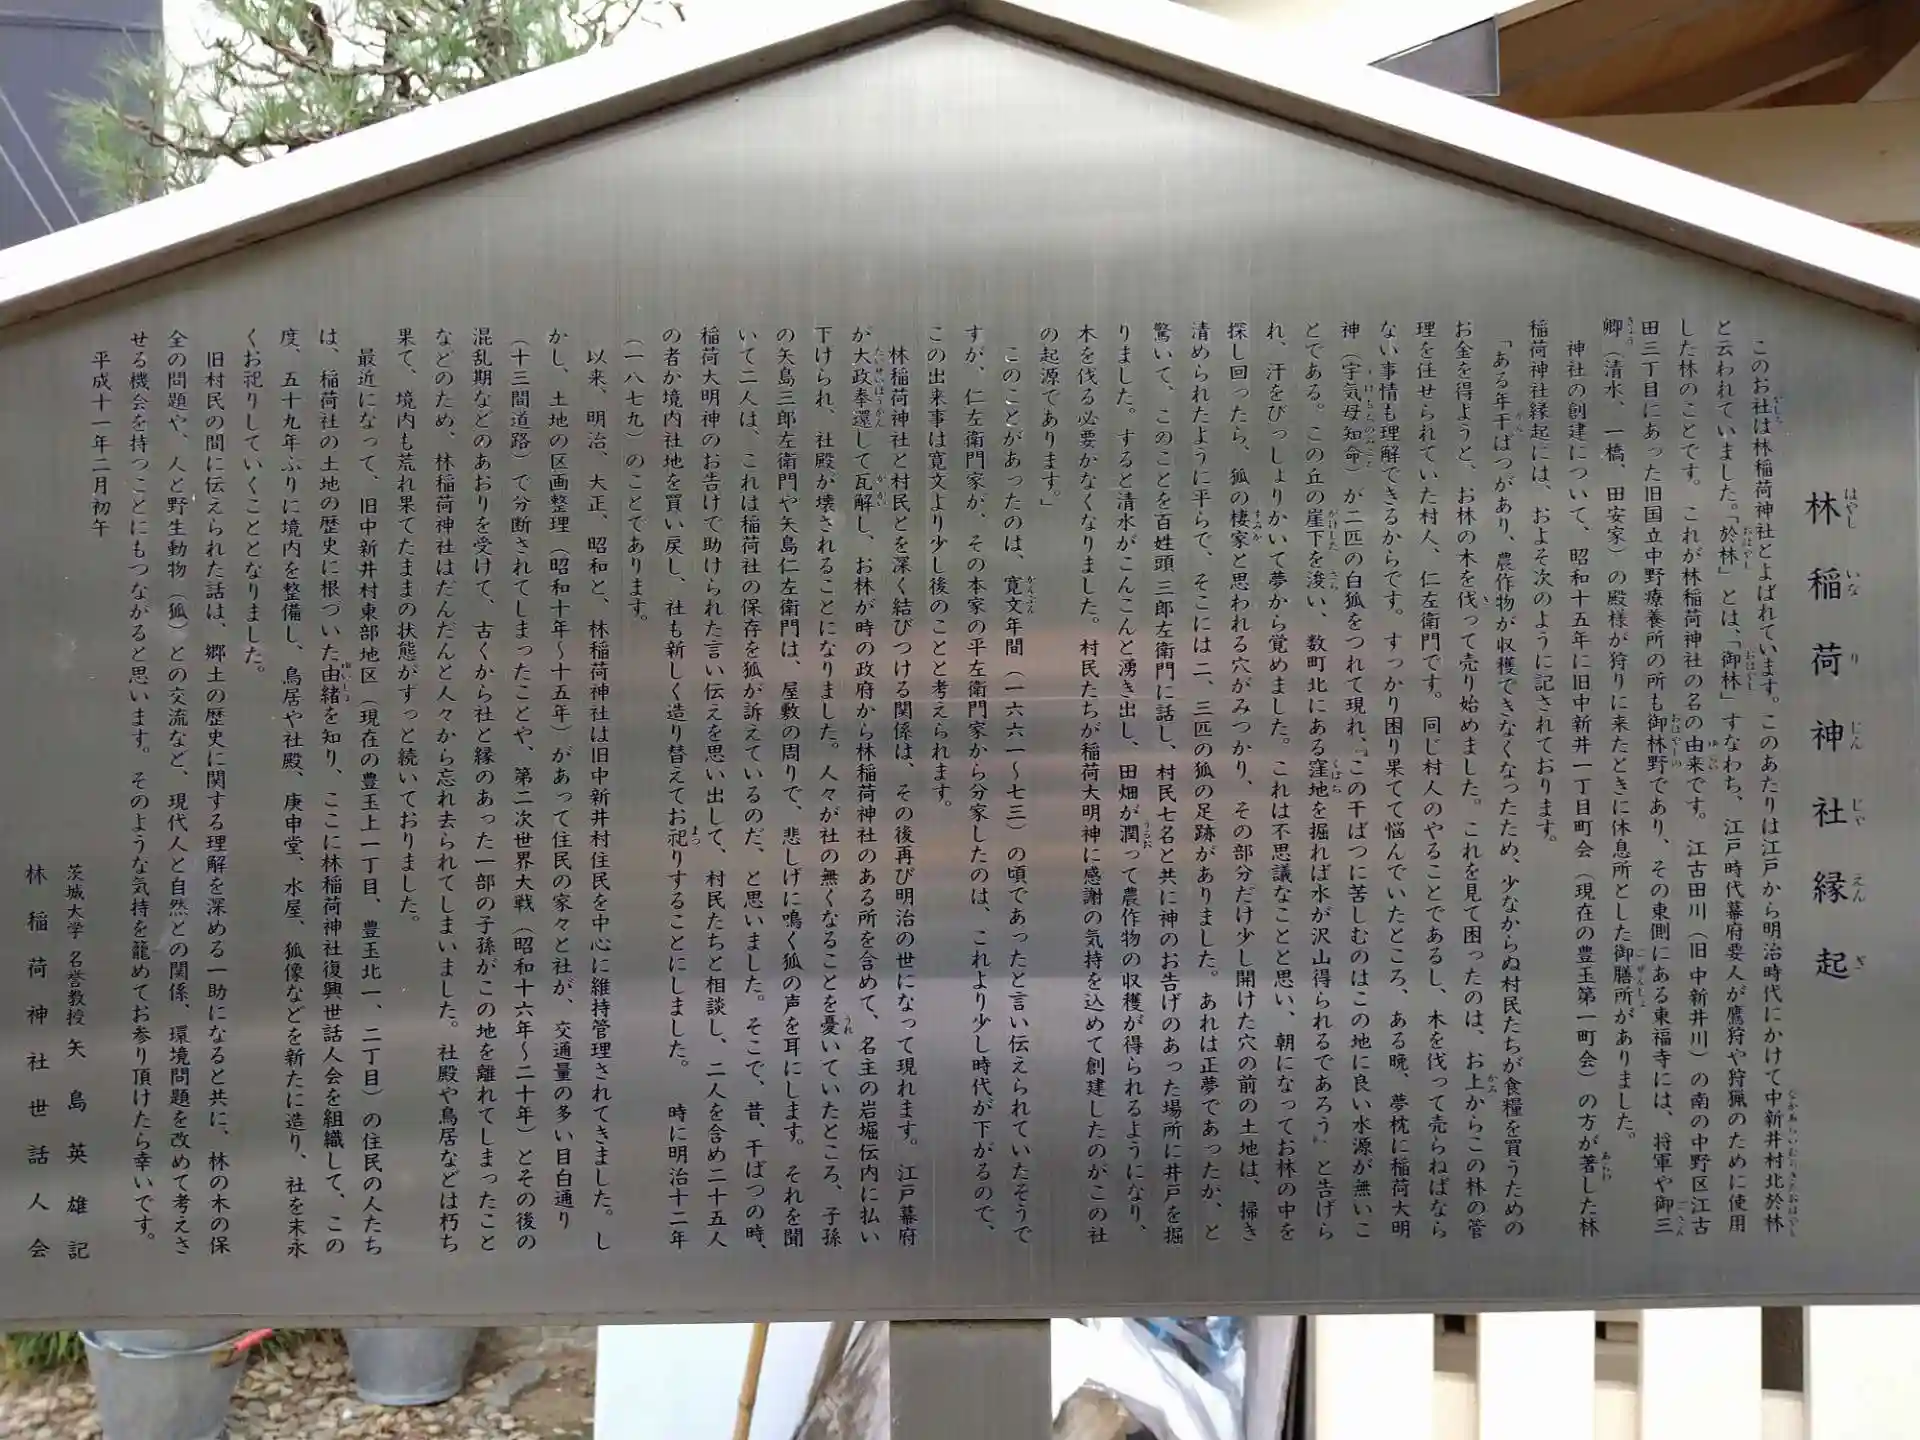 林稲荷神社縁起
このお社は林稲荷神社とよばれています。このあたりは江戸から明治時代にかけて中新井村北於林
と云われていました。「於林」とは、「御林」すなわち、江戸時代幕府要人が鷹狩や狩猟のために使用
した林のことです。これが林稲荷神社の名の由来です。江古田川（旧中新井川）の南の中野区江古
田三丁目にあった旧国立中野療養所の所も御林野であり、その東側にある東福寺には、将軍や御三
卿（清水、一橋、田安家）の殿様が狩りに来たときに休息所とした御膳所がありました。
神社の創建について、昭和十五年に旧中新井一丁目町会（現在の豊玉第一町会）の方が著した林
稲荷神社縁起には、およそ次のように記されております。
「ある年干ばつがあり、農作物が収穫できなくなったため、少なからぬ村民たちが食糧を買うための
お金を得ようと、お林の木を伐って売り始めました。これを見て困ったのは、お上からこの林の管
理を任せられていた村人、仁左衛門です。同じ村人のやることであるし、木を伐って売らねばなら
ない事情も理解できるからです。すっかり困り果てて悩んでいたところ、ある晩、夢枕に稲荷大明
神（宇気母知命）が二匹の白狐をつれて現れ、『この干ばつに苦しむのはこの地に良い水源が無いこ
とである。この丘の崖下を浚い、数町北にある窪地を掘れば水が沢山得られるであろう』と告げら
れ、汗をびっしょりかいて夢から覚めました。これは不思議なことと思い、朝になってお林の中を
探し回ったら、狐の棲家と思われる穴がみつかり、その部分だけ少し開けた穴の前の土地は、掃き
清められたように平らで、そこには二、三匹の狐の足跡がありました。あれは正夢であったか、と
驚いて、このことを百姓頭三郎左衛門に話し、村民七名と共に神のお告げのあった場所に井戸を掘
りました。すると清水がこんこんと湧き出し、田畑が潤って農作物の収穫が得られるようになり、
木を伐る必要かなくなりました。村民たちが稲荷大明神に感謝の気持を込めて創建したのがこの社
の起源であります。」
このことがあったのは、寛文年間（一六六一～七三）の頃であったと言い伝えられていたそうで
すが、仁左衛門家が、その本家の平左衛門家から分家したのは、これより少し時代が下がるので、
この出来事は寛文より少し後のことと考えられます。
林稲荷神社と村民とを深く結びつける関係は、その後再び明治の世になって現れます。江戸幕府
が大政奉還して瓦解し、お林が時の政府から林稲荷神社のある所を含めて、名主の岩堀伝内に払い
下けられ、社殿が壊されることになりました。人々が社の無くなることを憂いていたところ、子孫
の矢島三郎左衛門や矢島仁左衛門は、屋敷の周りで、悲しげに鳴く狐の声を耳にします。それを聞
いて二人は、これは稲荷社の保存を狐が訴えているのだ、と思いました。そこで、昔、干ばつの時、
稲荷大明神のお告げで助けられた言い伝えを思い出して、村民たちと相談し、二人を含め二十五人
の者か境内社地を買い戻し、社も新しく造り替えてお祀りすることにしました。　時に明治十二年
（一八七九）のことであります。
以来、明治、大正、昭和と、林稲荷神社は旧中新井村住民を中心に維持管理されてきました。し
かし、土地の区画整理（昭和十年～十五年）があって住民の家々と社が、交通量の多い目白通り
（十三間道路）で分断されてしまったことや、第二次世界大戦（昭和十六年～二十年）とその後の
混乱期などのあおりを受けて、古くから社と縁のあった一部の子孫がこの地を離れてしまったこと
などのため、林稲荷神社はだんだんと人々から忘れ去られてしまいました。社殿や鳥居などは朽ち
果て、境内も荒れ果てたままの状態がずっと続いておりました。
最近になって、旧中新井村東部地区（現在の豊玉上一丁目、豊玉北一、二丁目）の住民の人たち
は、稲荷社の土地の歴史に根づいた由緒を知り、ここに林稲荷神社復興世話人会を組織して、この
度、五十九年ぶりに境内を整備し、鳥居や社殿、庚申堂、水屋、狐像などを新たに造り、社を末永
くお祀りしていくこととなりました。
旧村民の間に伝えられた話は、郷土の歴史に関する理解を深める一助になると共に、林の木の保
全の問題や、人と野生動物（狐）との交流など、現代人と自然との関係、環境問題を改めて考えさ
せる機会を持つことにもつながると思います。そのような気持を籠めてお参り頂けたら幸いです。
平成十一年二月初午
茨城大学 名誉教授 矢島英雄 記
林稲荷神社世話人会